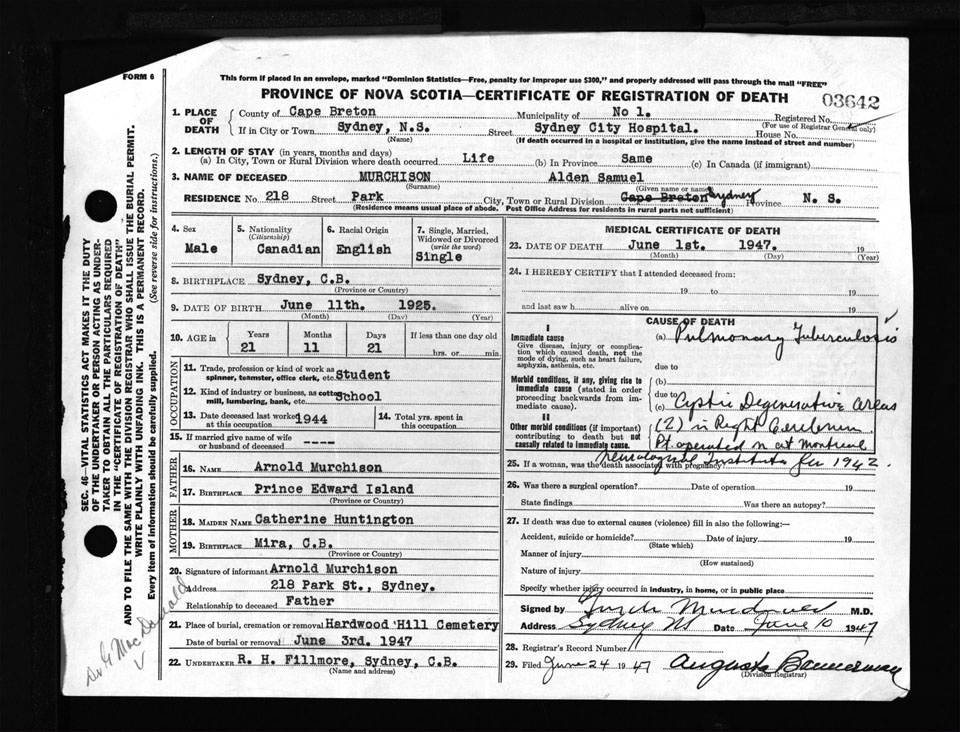 FORM 6
This form if placed in an envelope, marked "Dominion Statistics—Free, penalty for improper use $300," and properly addressed will pass through the mail "FREE"
PROVINCE OF NOVA SCOTIA—CERTIFICATE OF REGISTRATION OF DEATH
03642
1. PLACE OF DEATH
County of Cape Breton Municipality of No 1. Registered No.
(For use of Registrar General only)
If in City or Town Sydney, N.S. Street Sydney City Hospital. House No.
(Name) (If death occurred in a hospital or institution, give the name instead of street and number)
2. LENGTH OF STAY (in years, months and days)
(a) In City, Town or Rural Division where death occurred Life (b) In Province Same (c) In Canada (if immigrant)
3. NAME OF DECEASED MURCHISON Alden Samuel
(Surname) (Given name or names)
RESIDENCE No. 218 Street Park City, Town or Rural Division Cape Breton Sydney Province N. S.
(Residence means usual place of abode. Post Office Address for residents in rural parts not sufficient)
4. Sex
Male
5. Nationality
(Citizenship)
Canadian
6. Racial Origin
English
7. Single, Married, Widowed or Divorced
(write the word)
Single
8. BIRTHPLACE Sydney, C.B.
(Province or Country)
9. DATE OF BIRTH June 11th. 1925.
(Month) (Day) (Year)
10. AGE in
Years Months Days If less than one day old
21 11 21 hrs. or min.
OCCUPATION
11. Trade, profession or kind of work as spinner, teamster, office clerk, etc. Student
12. Kind of industry or business, as cotton mill, lumbering, bank, etc. School
13. Date deceased last worked at this occupation 1944
14. Total yrs. spent in this occupation
15. If married give name of wife or husband of deceased ----
FATHER
16. NAME Arnold Murchison
17. BIRTHPLACE Prince Edward Island
(Province or Country)
MOTHER
18. MAIDEN NAME Catherine Huntington
19. BIRTHPLACE Mira, C.B.
(Province or Country)
20. Signature of informant Arnold Murchison
Address 218 Park St., Sydney.
Relationship to deceased Father
21. Place of burial, cremation or removal Hardwood Hill Cemetery
Date of burial or removal June 3rd. 1947
22. UNDERTAKER R. H. Fillmore, Sydney, C.B.
(Name and address)
MEDICAL CERTIFICATE OF DEATH
23. DATE OF DEATH June 1st. 1947. 19
(Month) (Day) (Year)
24. I HEREBY CERTIFY that I attended deceased from:
19 to 19
and last saw h alive on 19
CAUSE OF DEATH
I
Immediate cause
Give disease, injury or complication which caused death, not the mode of dying, such as heart failure, asphyxia, asthenia, etc.
(a) Pulmonary Tuberculosis
due to
Morbid conditions, if any, giving rise to immediate cause (stated in order proceeding backwards from immediate cause).
(b)
due to
(c) Cystic Degenerative areas
II
Other morbid conditions (if important) contributing to death but not causally related to immediate cause.
(2) in Right Cerebrum
Pt. operated on at Montreal
Neurological Institute Jan 1942.
25. If a woman, was the death associated with pregnancy?
26. Was there a surgical operation? Date of operation 19
State findings Was there an autopsy?
27. If death was due to external causes (violence) fill in also the following:—
Accident, suicide or homicide? Date of injury 19
(State which)
Manner of injury
(How sustained)
Nature of injury
Specify whether injury occurred in industry, in home, or in public place
Signed by M.D.
Address Sydney NS Date June 10 1947
28. Registrar's Record Number
29. Filed June 24 1947 Augusta Bannerman
(Division Registrar)
SEC. 46—VITAL STATISTICS ACT MAKES IT THE DUTY
OF THE UNDERTAKER OR PERSON ACTING AS UNDER-
TAKER TO OBTAIN ALL THE PARTICULARS REQUIRED
IN THE "CERTIFICATE OF REGISTRATION OF DEATH"
AND TO FILE THE SAME WITH THE DIVISION REGISTRAR WHO SHALL ISSUE THE BURIAL PERMIT.
WRITE PLAINLY WITH UNFADING INK. THIS IS A PERMANENT RECORD.
Every item of information should be carefully supplied. (See reverse side for instructions.)
Dr. G MacDonald